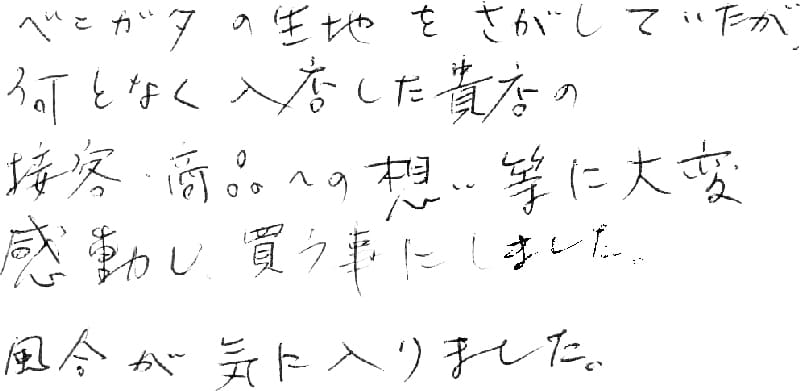 べにガタの生地をさがしていたが、
何となく入店した貴店の
接客・商品への想い等に大変
感動し、買う事にしました。
風合が気に入りました。